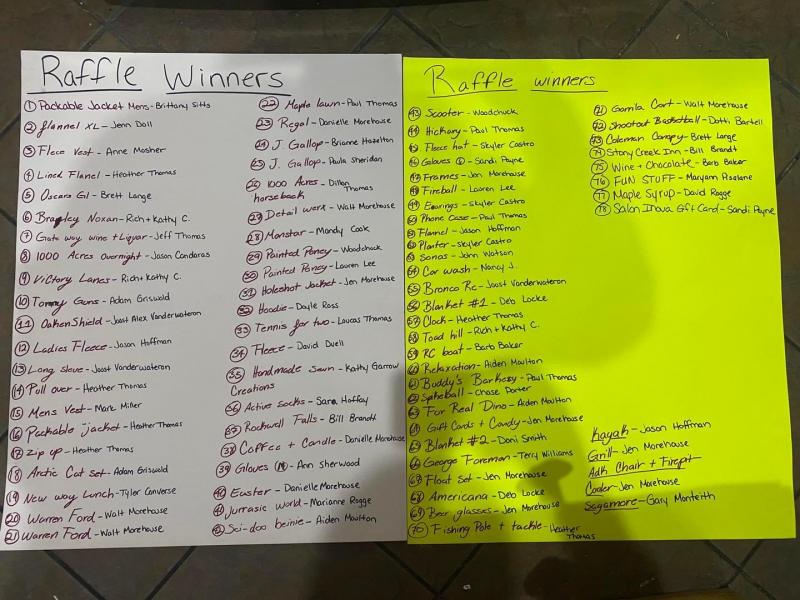 Raffle Winners
1 Packable Jacket Mens - Brittany Sitts
2 flannel XL - Jenn Doll
3 Fleece Vest - Anne Mosher
4 Lined Flanel - Heather Thomas
5 Oscars G.C - Brett Lange
6 Noxan - Rich + Kathy C.
7 Gate way wine + Liquor - Jeff Thomas
8 1000 Acres Overnight - Jason
9 Victory Lanes - Rich + Kathy C.
10 Tommy Guns - Adam Griswold
11 Oaken Shield - Joost Alex Vanderwateron
12 Ladies Fleece - Jason Hoffman
13 Long Sleve - Joost Vanderwateron
14 Pull over - Heather Thomas
15 Mens Vest - Marc Miller
16 Packable jacket - Heather Thomas
17 Zip up - Heather Thomas
18 Arctic Cat set - Adam Griswold
19 New way Lunch - Tyler Converse
20 Warren Ford - Walt Morehouse
21 Warren Ford - Walt Morehouse
22 Maple lawn - Paul Thomas
23 Regal - Danielle Morehouse
24 J. Gallop - Brianne Hazelton
25 J. Gallop - Paula Sheridan
26 1000 Acres - Dillon Thomas
horseback
27 Detail werx - Walt Morehouse
28 Monstar - Mandy Cook
29 Painted Poney - Woodchuck
30 Painted Poney - Lauren Lee
31 Holeshot Jacket - Jen Morehouse
32 Hoodie - Dayle Ross
33 Tennis for two - Loucas Thomas
34 Fleece - David Duell
35 Handmade Sewn - Kathy Garrow
Creations
36 Active socks - Sara Hoffay
37 Rockwell Falls - Bill Brandt
38 Coffee + Candle - Danielle Morehouse
39 Gloves (M) - Ann Sherwood
40 Easter - Danielle Morehouse
41 Jurrasic world - Marianne Rogge
42 Sci-doo beinie - Aiden Moulton
Raffle winners
43 Scooter - Woodchuck
44 Hickory - Paul Thomas
45 Fleece hat - Skyler Castro
46 Gloves - Sandi Payne
47 Frames - Jen Morehouse
48 Fireball - Lauren Lee
49 Earrings - Skyler Castro
50 Phone Case - Paul Thomas
51 Flannel - Jason Hoffman
52 Planter - Skyler Castro
53 Sonas - John Watson
54 Car wash - Nancy J.
55 Bronco Rc - Joost Vanderwateron
56 Blanket #1 - Deb Locke
57 Clock - Heather Thomas
58 Toad hill - Rich + Kathy C.
59 RC boat - Barb Baker
60 Relaxation - Aiden Moulton
61 Buddy's Barkery - Paul Thomas
62 Spikeball - Chase Porter
63 Fur Real Dino - Aiden Moulton
64 Gift Cards + Candy - Jen Morehouse
65 Blanket #2 - Doni Smith
66 George Foreman - Terry Williams
67 Float Set - Jen Morehouse
68 Americana - Deb Locke
69 Beer glasses - Jen Morehouse
70 Fishing Pole + tackle - Heather
Thomas
71 Gorilla Cart - Walt Morehouse
72 Shootout Basketball - Dotti Bartell
73 Coleman Canopy - Brett Lange
74 Stony Creek Inn - Bill Brandt
75 Wine + Chocolate - Barb Baker
76 FUN STUFF - Maryann
77 Maple Syrup - David Rogge
78 Salon Inova Gift Card - Sandi Payne
Kayak - Jason Hoffman
Grill - Jen Morehouse
Adk Chair + Firepit
Cooler - Jen Morehouse
Sagamore - Gary Monteith